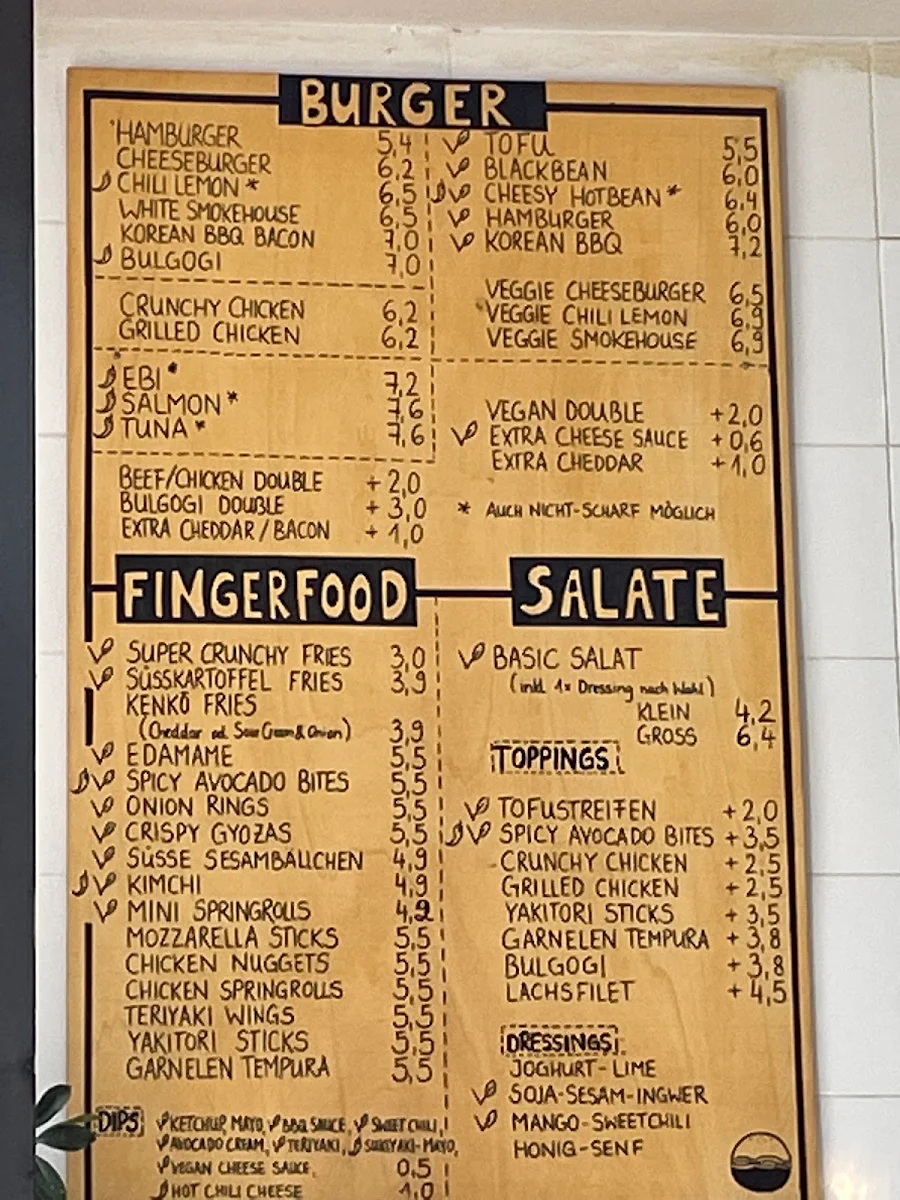 BURGER
HAMBURGER 5,4
CHEESEBURGER 6,2
CHILI LEMON * 6,5
WHITE SMOKEHOUSE 6,5
KOREAN BBQ BACON 7,0
BULGOGI 7,0
CRUNCHY CHICKEN 6,2
GRILLED CHICKEN 6,2
EBI * 7,2
SALMON * 7,6
TUNA * 7,6
BEEF/CHICKEN DOUBLE + 2,0
BULGOGI DOUBLE + 3,0
EXTRA CHEDDAR / BACON + 1,0
TOFU 5,5
BLACKBEAN 6,0
CHEESY HOTBEAN * 6,4
HAMBURGER 6,0
KOREAN BBQ 7,2
VEGGIE CHEESEBURGER 6,5
VEGGIE CHILI LEMON 6,9
VEGGIE SMOKEHOUSE 6,9
VEGAN DOUBLE +2,0
EXTRA CHEESE SAUCE +0,6
EXTRA CHEDDAR +1,0
* AUCH NICHT-SCHARF MÖGLICH
FINGERFOOD
SUPER CRUNCHY FRIES 3,0
SÜSSKARTOFFEL FRIES 3,9
KENKŌ FRIES
(Cheddar od. Sour Cream & Onion) 3,9
EDAMAME 5,5
SPICY AVOCADO BITES 5,5
ONION RINGS 5,5
CRISPY GYOZAS 5,5
SÜSSE SESAMBÄLLCHEN 4,9
KIMCHI 4,9
MINI SPRINGROLLS 4,2
MOZZARELLA STICKS 5,5
CHICKEN NUGGETS 5,5
CHICKEN SPRINGROLLS 5,5
TERIYAKI WINGS 5,5
YAKITORI STICKS 5,5
GARNELEN TEMPURA 5,5
DIPS KETCHUP, MAYO, BBQ SAUCE, SWEET CHILI,
AVOCADO CREAM, TERIYAKI, SUKIYAKI-MAYO,
VEGAN CHEESE SAUCE, 0,5
HOT CHILI CHEESE 1,0
SALATE
BASIC SALAT
(inkl. 1x Dressing nach Wahl)
KLEIN 4,2
GROSS 6,4
TOPPINGS
TOFUSTREIFEN +2,0
SPICY AVOCADO BITES +3,5
CRUNCHY CHICKEN +2,5
GRILLED CHICKEN +2,5
YAKITORI STICKS +3,5
GARNELEN TEMPURA +3,8
BULGOGI +3,8
LACHSFILET +4,5
DRESSINGS
JOGHURT-LIME
SOJA-SESAM-INGWER
MANGO-SWEETCHILI
HONIG-SENF